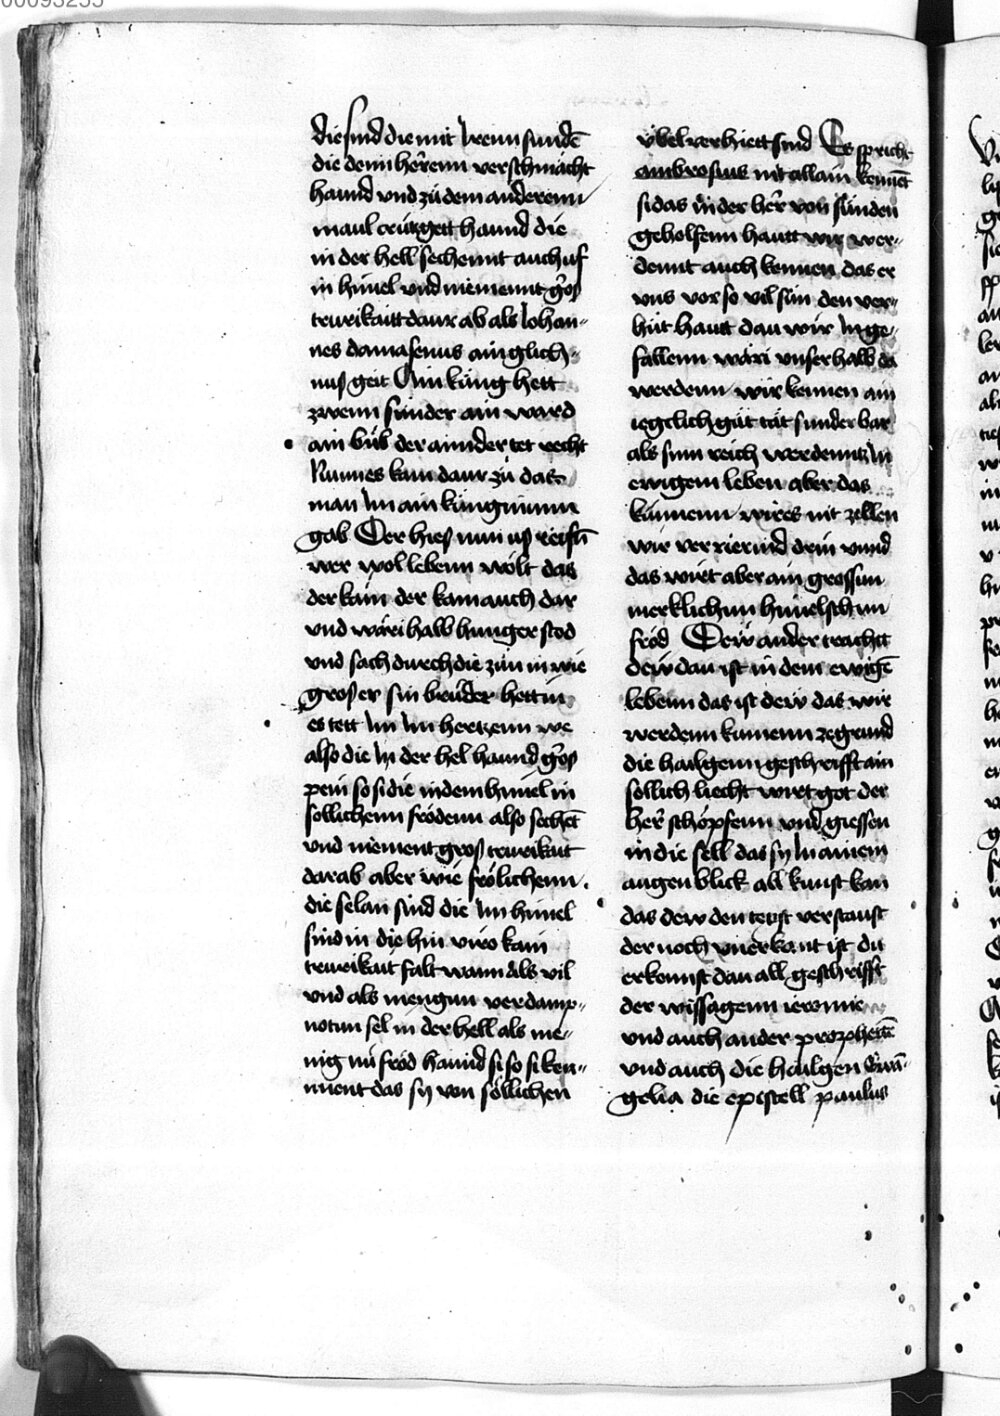 00093255
die sind die mit Irenn sundē
die demi herrenn verschmächt
haund vnd zů dem anderenn
maul crützgett haund die
in der hell sechennt auch uf
in himel vnd niemennt gros
trurikaitt daur ab als Iohan-
nes damasenus ain glich-
nus geit Ain küng hett
zwenn sünder ain ward
ain bůb der annder tet recht
Nunnes kam daur zů das
man Im ain küngninnn
gab Der hies nun us
wer wol lebenn wölt das
der käm der kam auch dar
vnd wäri halb hunger stod
vnd sach durch die zün in wie
gros er sin brüder hett in
es tett Im Im hertzenn we
also die In der hel haund gros
pein so si die in dem himel in
sollichenn frödenn also sechēt
vnd niement gros trurikait
darab aber wie frölichenn
die selan sind die Im himel
sind in die hin viro kain
trurikait falt wann als vil
vnd als mengun verdamp-
notun sel in der hell als me-
nig nü fröd haund si so si ken-
nnent das sy von söllichen
übel verhiett sind Es spricht
ambrosius nit allain kennēt
si das in der her von sünden
geholfenn hautt wir wer-
dennt auch kennen das er
vns vor so vil sün den ver-
hüt hautt dan wir In ge-
fallenn wäri vnser halb da
werdenn wir kennen ain
iegelich gůt tät sunder bar
als sinn reich werdenntz In
ewigem leben aber das
künnenn wir es nit zellen
wir ver rierind drin vnnd
das wirt aber ain grossun
merklichun himelschun
fröd Dew ander trachtt
dew dan ist in dem ewigē
lebenn das ist dew das wir
werdenn kunnenn ze grund
die hailgenn geschrifft ain
sollich liecht wirt got der
her schöpfenn vnd giessen
in die sell das sy In ainem
augen blick all kunst kan
das dew den text verstaust
der noch vnerkant ist du
erkennst dan all geschrifft
der wissagenn ieremie
vnd auch ander prophettē
vnd auch die hailgen Ewā-
gelia die epistell paulus